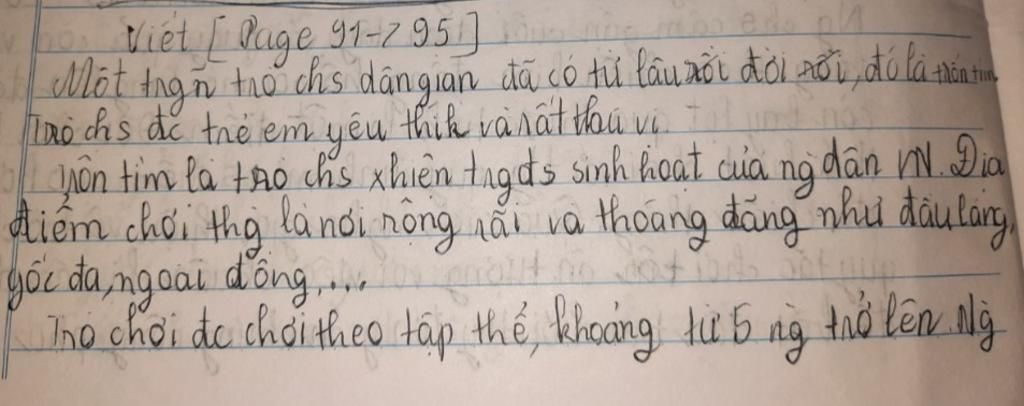 Viết [Page 91-> 95]
Một trg ~ trò chs dân gian đã có từ lâu rồi đời rồi, đó là trốn tìm
Trò chs đc trẻ em yêu thík và rất thú vị
Trốn tìm là trò chs xhiện trg ds sinh hoạt của ng dân VN. Địa
điểm chơi thg là nơi rộng rãi và thoáng đãng như đầu làng,
gốc đa, ngoài đồng,...
Trò chơi đc chơi theo tập thể, khoảng từ 5 ng trở lên. Ng